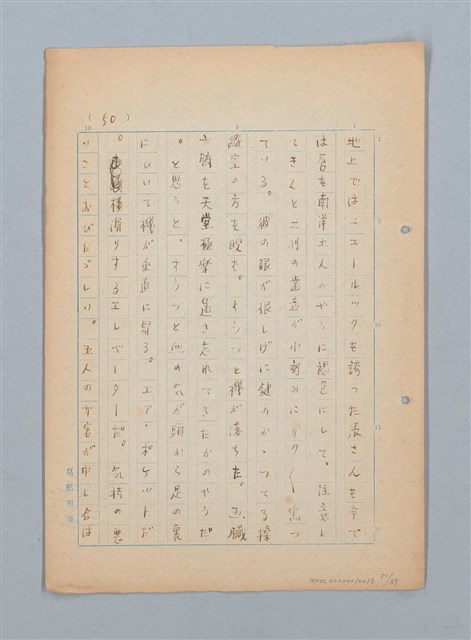 (50)
地上ではニュールックを誇った張さんも今で
は唇を南洋土人のやうに褐色にして。注意し
てきくと二列の歯並が小刻みにカタ〳〵鳴つ
てゐる。彼の眼が恨しげに鍵のかゝつてる操
縦室の方を睨む。すうつと機が落ちた。五臓
六腑を天堂極楽に置き忘れてきたかのやうだ
。と思うと、すうつと血の気が頭から足の裏
にひいて機が垂直に昇る。エア・ポケットだ
。横滑りするエレベーターだ。気持の悪
いことおびたゞしい。五人の女客が申し合は